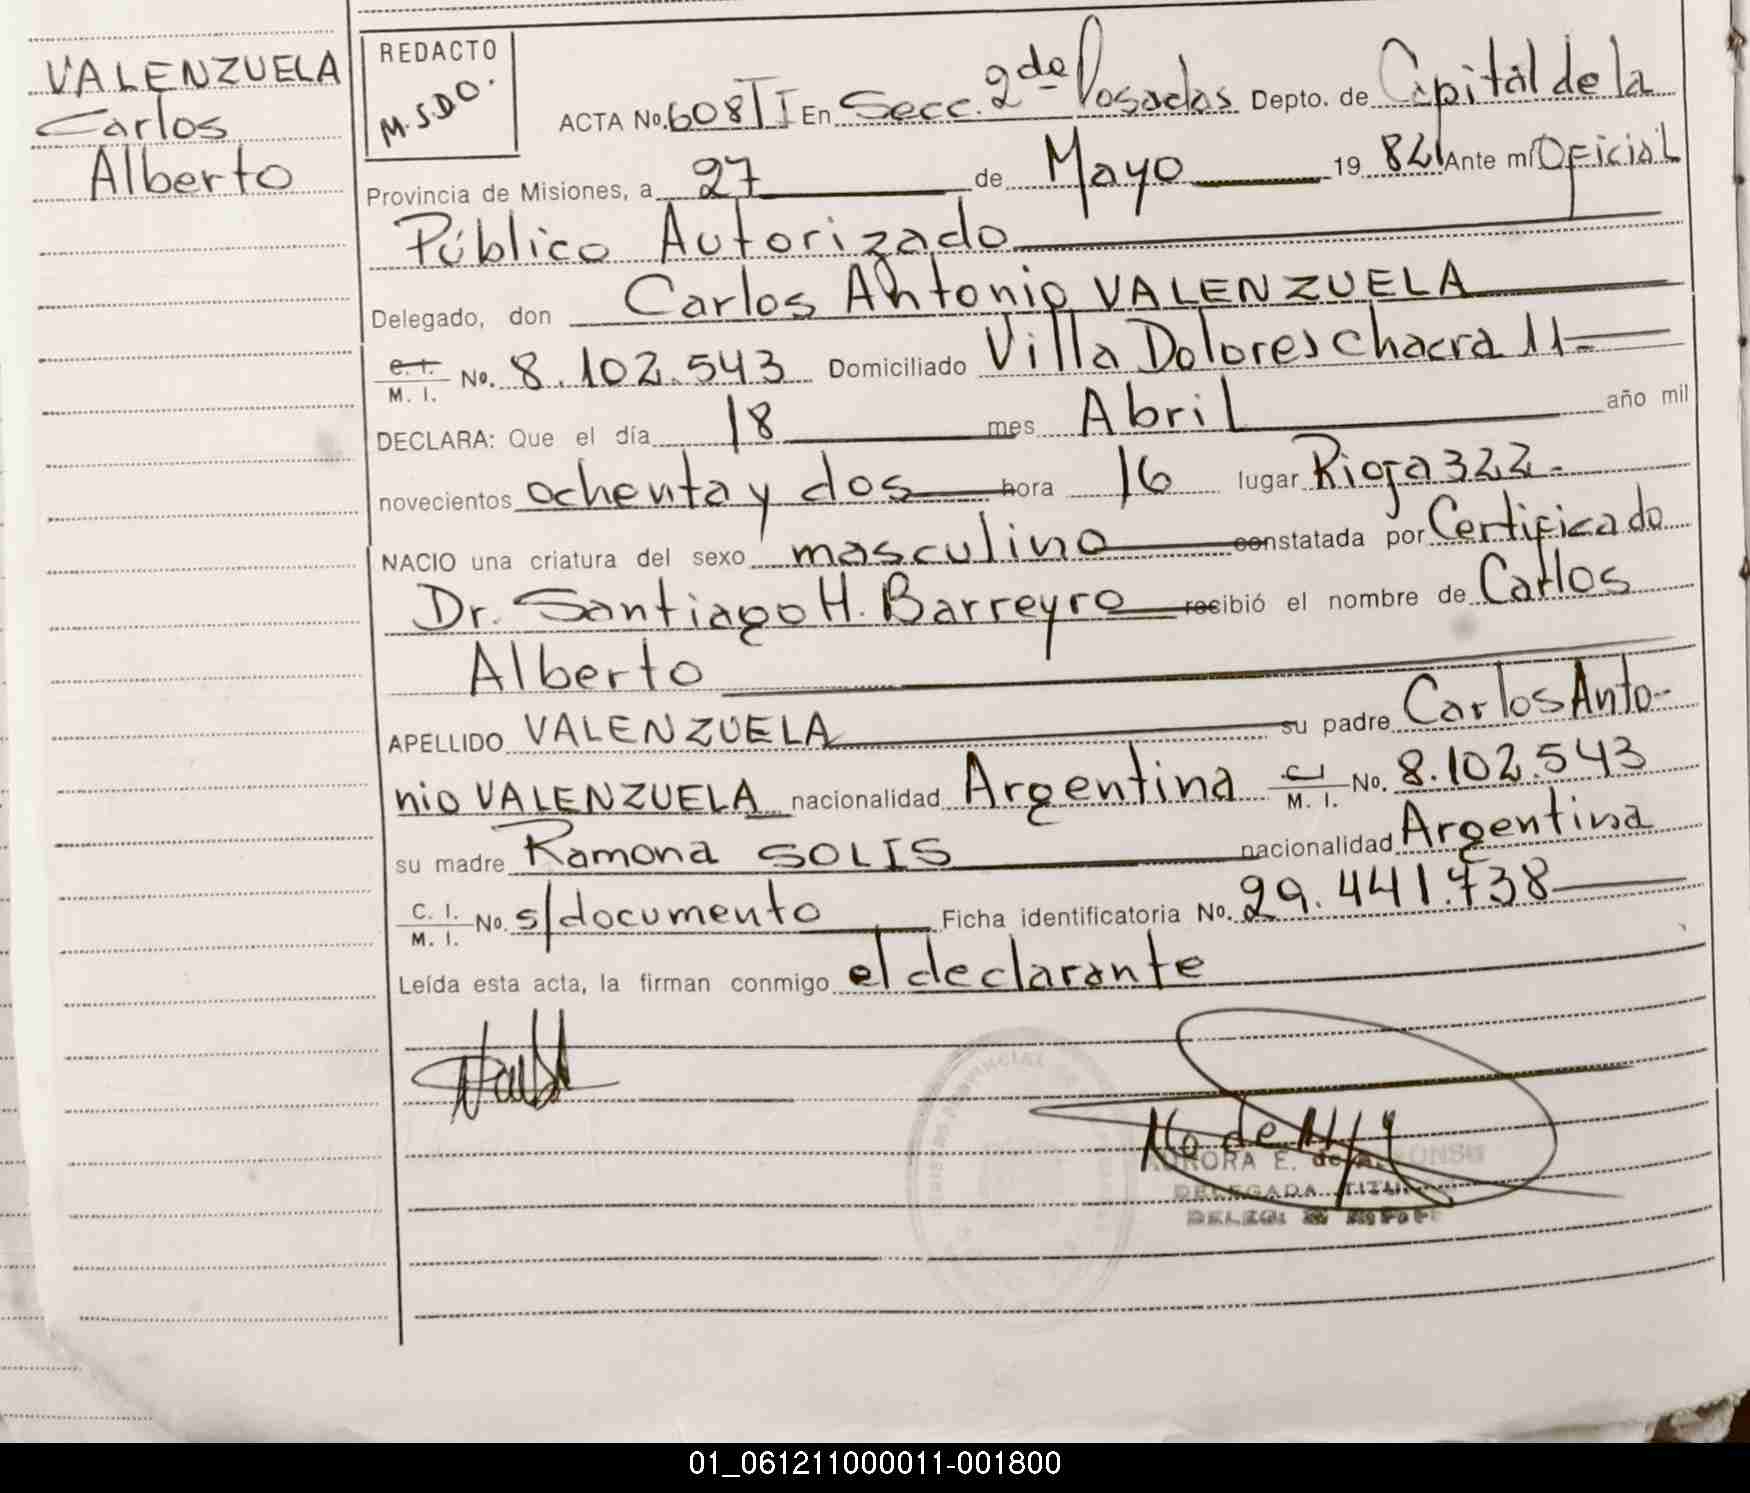 VALENZUELA
Carlos
Alberto
REDACTO
M.S.D.O.
ACTA No. 608 T I En Secc. 2da Posadas Depto. de Capital de la
Provincia de Misiones, a 27 de Mayo 1982 Ante mí Oficial
Público Autorizado
Delegado, don Carlos Antonio VALENZUELA
C. I. M. I. No. 8.102.543 Domiciliado Villa Dolores chacra 11-
DECLARA: Que el día 18 mes Abril año mil
novecientos ochenta y dos hora 16 lugar Rioja 322-
NACIO una criatura del sexo masculino constatada por Certificado
Dr. Santiago H. Barreyro recibió el nombre de Carlos
Alberto
APELLIDO VALENZUELA su padre Carlos Anto-
nio VALENZUELA nacionalidad Argentina C. I. M. I. No. 8.102.543
su madre Ramona SOLIS nacionalidad Argentina
C. I. M. I. No. s/documento Ficha identificatoria No. 29.441.738
Leída esta acta, la firman conmigo el declarante
AURORA E. de
DELEGADA
01_061211000011-001800